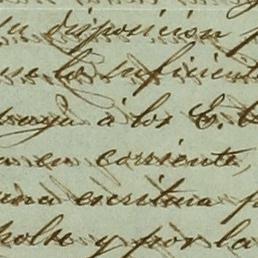 su disposicion p
que lo suficiente
traga á los E.
en corriente,
una escritura p
y por la